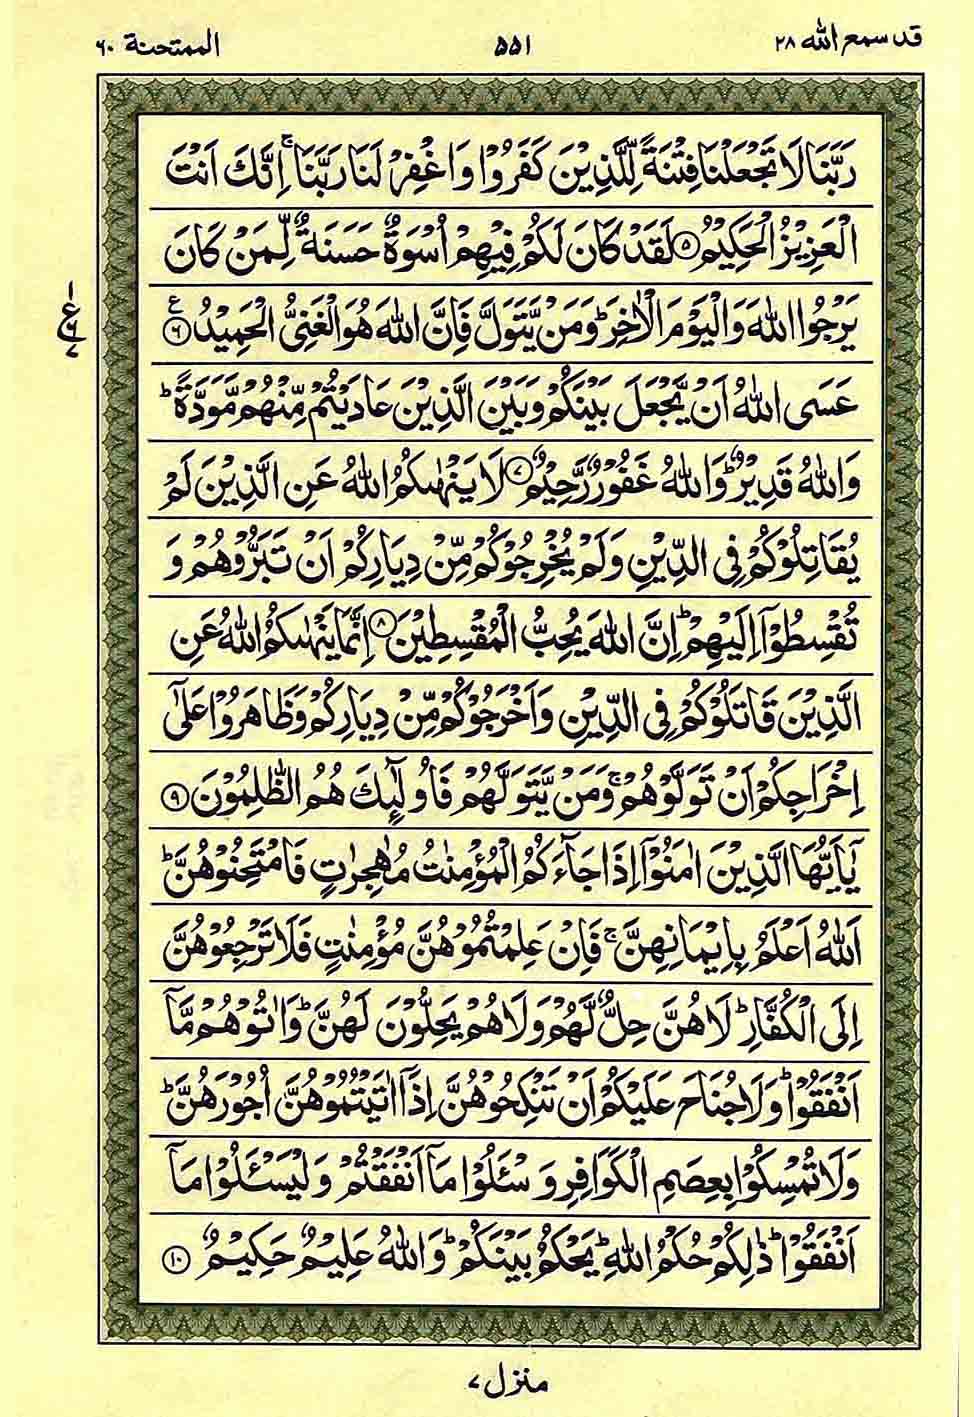 قد سمع الله ٢٨
٥٥١
الممتحنة ٦٠
رَبَّنَا لَا تَجْعَلْنَا فِتْنَةً لِّلَّذِيْنَ كَفَرُوْا وَاغْفِرْ لَنَا رَبَّنَا ۚ اِنَّكَ اَنْتَ
الْعَزِيْزُ الْحَكِيْمُ ۝٥ لَقَدْ كَانَ لَكُمْ فِيْهِمْ اُسْوَةٌ حَسَنَةٌ لِّمَنْ كَانَ
يَرْجُوا اللّٰهَ وَالْيَوْمَ الْاٰخِرَ ؕ وَمَنْ يَّتَوَلَّ فَاِنَّ اللّٰهَ هُوَ الْغَنِىُّ الْحَمِيْدُ ۝٦ ع
عَسَى اللّٰهُ اَنْ يَّجْعَلَ بَيْنَكُمْ وَبَيْنَ الَّذِيْنَ عَادَيْتُمْ مِّنْهُمْ مَّوَدَّةً ؕ
وَاللّٰهُ قَدِيْرٌ ؕ وَاللّٰهُ غَفُوْرٌ رَّحِيْمٌ ۝٧ لَا يَنْهٰىكُمُ اللّٰهُ عَنِ الَّذِيْنَ لَمْ
يُقَاتِلُوْكُمْ فِى الدِّيْنِ وَلَمْ يُخْرِجُوْكُمْ مِّنْ دِيَارِكُمْ اَنْ تَبَرُّوْهُمْ وَ
تُقْسِطُوْۤا اِلَيْهِمْ ؕ اِنَّ اللّٰهَ يُحِبُّ الْمُقْسِطِيْنَ ۝٨ اِنَّمَا يَنْهٰىكُمُ اللّٰهُ عَنِ
الَّذِيْنَ قَاتَلُوْكُمْ فِى الدِّيْنِ وَاَخْرَجُوْكُمْ مِّنْ دِيَارِكُمْ وَظَاهَرُوْا عَلٰۤى
اِخْرَاجِكُمْ اَنْ تَوَلَّوْهُمْ ۚ وَمَنْ يَّتَوَلَّهُمْ فَاُولٰٓئِكَ هُمُ الظّٰلِمُوْنَ ۝٩
يٰۤاَيُّهَا الَّذِيْنَ اٰمَنُوْۤا اِذَا جَآءَكُمُ الْمُؤْمِنٰتُ مُهٰجِرٰتٍ فَامْتَحِنُوْهُنَّ ؕ
اَللّٰهُ اَعْلَمُ بِاِيْمَانِهِنَّ ۚ فَاِنْ عَلِمْتُمُوْهُنَّ مُؤْمِنٰتٍ فَلَا تَرْجِعُوْهُنَّ
اِلَى الْكُفَّارِ ؕ لَا هُنَّ حِلٌّ لَّهُمْ وَلَا هُمْ يَحِلُّوْنَ لَهُنَّ ؕ وَاٰتُوْهُمْ مَّاۤ
اَنْفَقُوْا ؕ وَلَا جُنَاحَ عَلَيْكُمْ اَنْ تَنْكِحُوْهُنَّ اِذَاۤ اٰتَيْتُمُوْهُنَّ اُجُوْرَهُنَّ ؕ
وَلَا تُمْسِكُوْا بِعِصَمِ الْكَوَافِرِ وَسْئَلُوْا مَاۤ اَنْفَقْتُمْ وَلْيَسْئَلُوْا مَاۤ
اَنْفَقُوْا ؕ ذٰلِكُمْ حُكْمُ اللّٰهِ ؕ يَحْكُمُ بَيْنَكُمْ ؕ وَاللّٰهُ عَلِيْمٌ حَكِيْمٌ ۝١٠
منزل ٧